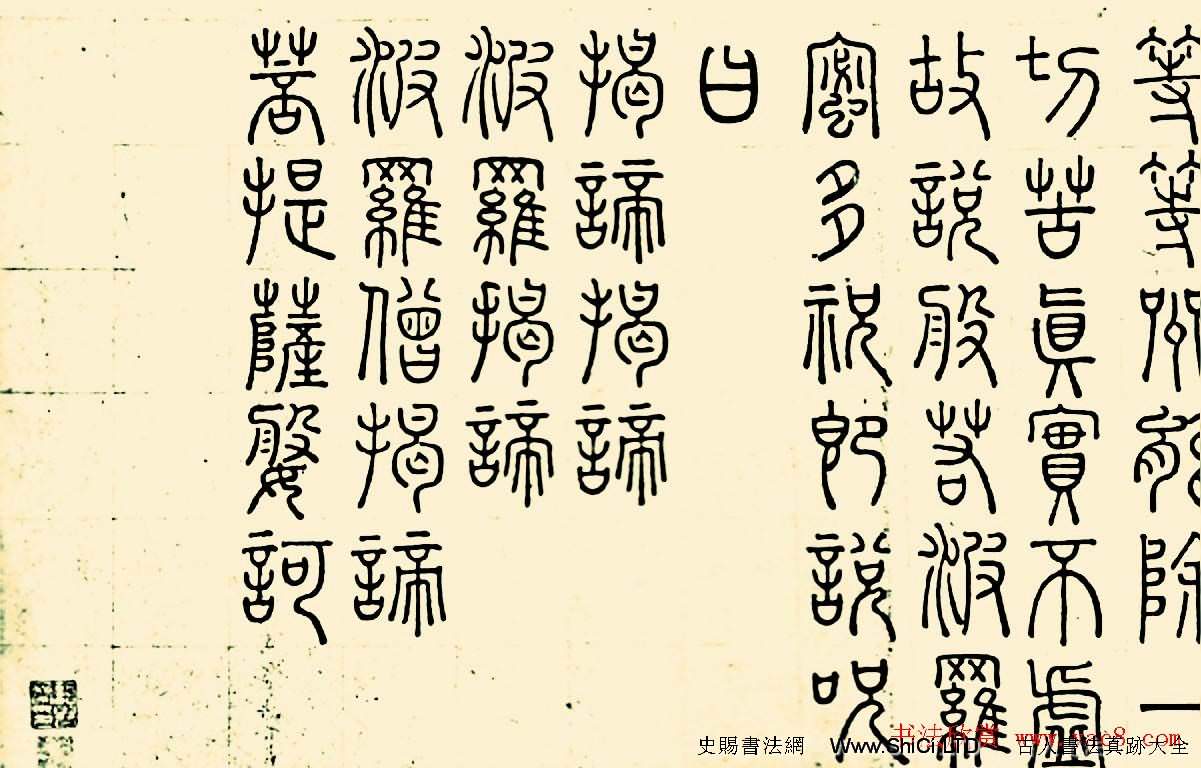 等等咒能除一
切苦眞實不虛
故說般若波羅
蜜多祝即說呪
曰
揭諦揭諦
波羅揭諦
波羅僧揭諦
菩提薩婆訶
书法欣赏 www.yac8.com
史賜書法網 Www.SHICI.LTD 古人書法真跡大全